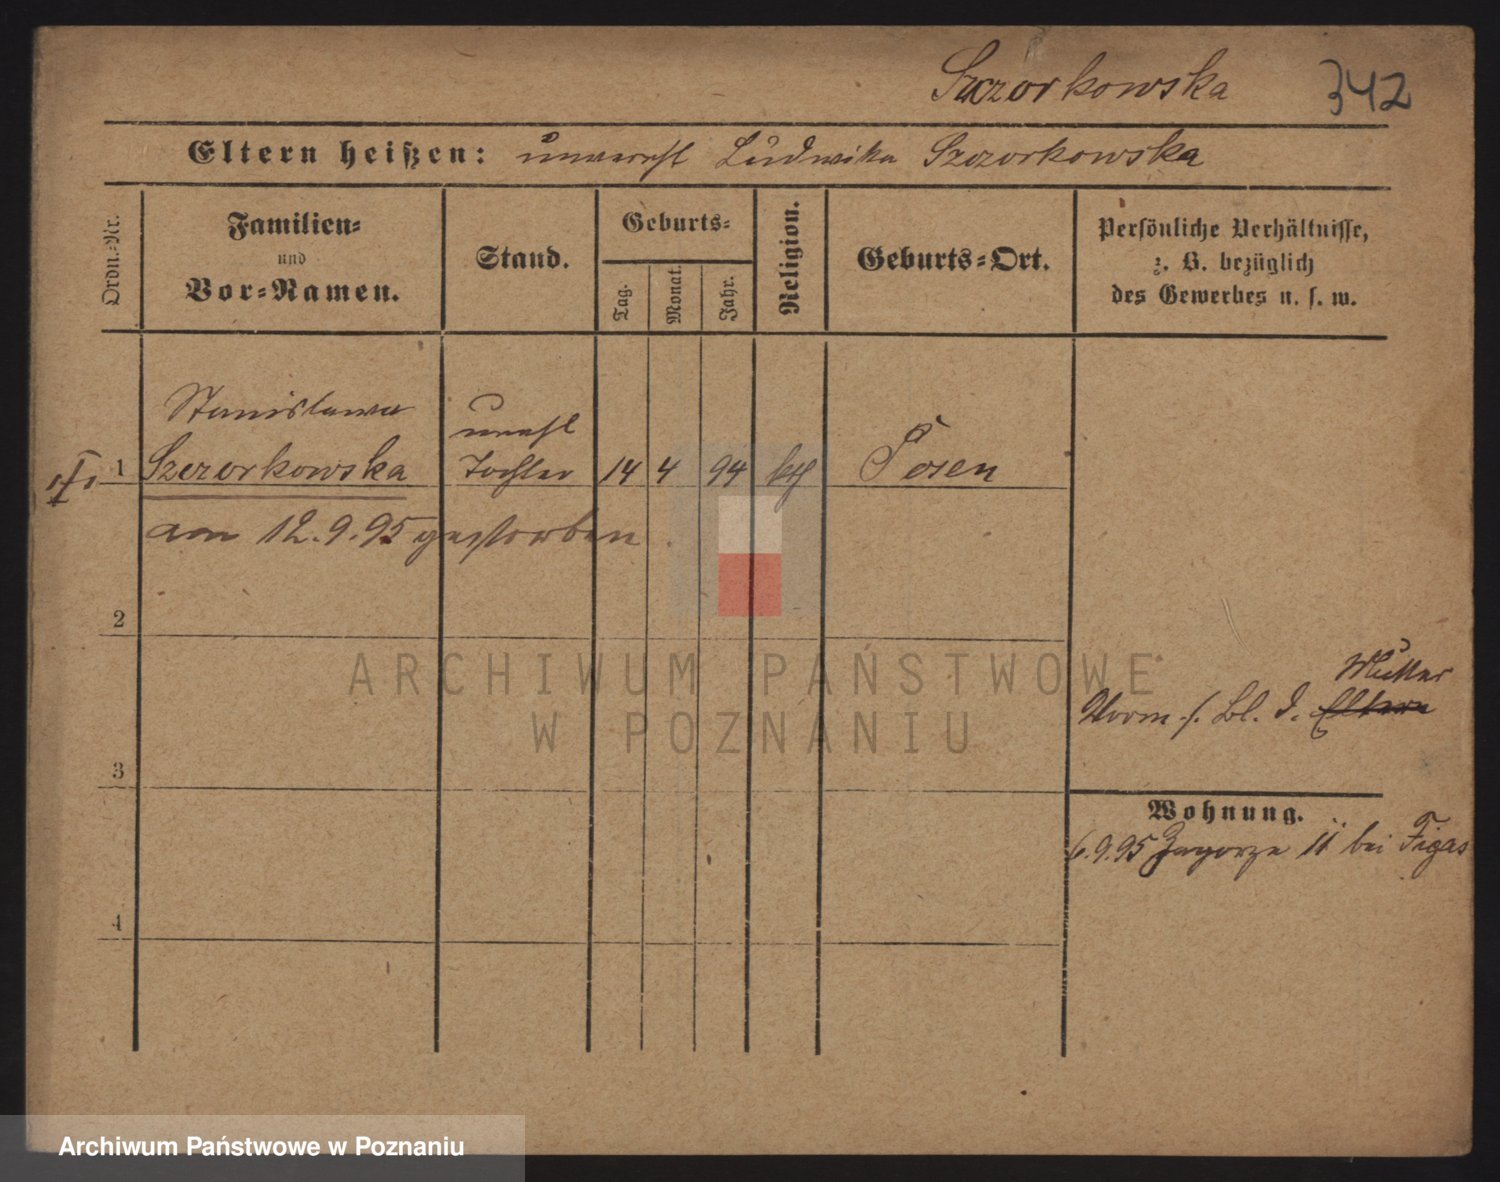 Szczorkowska 342
Eltern heißen: unverehl Ludwika Szczorkowska
Ordn.-Nr.
Familien-
und
Vor-Namen.
Stand.
Geburts-
Tag.
Monat.
Jahr.
Religion.
Geburts-Ort.
Persönliche Verhältnisse,
z. B. bezüglich
des Gewerbes u. s. w.
Stanisława unehl
1 Szczorkowska Tochter 14 4 94 kth Posen
am 12.9.95 gestorben
2
Mutter
Vorm. s. Bl. d. Eltern
3
Wohnung.
6.9.95 Zagorze 11 bei Figas
4
ARCHIWUM PAŃSTWOWE
W POZNANIU
Archiwum Państwowe w Poznaniu